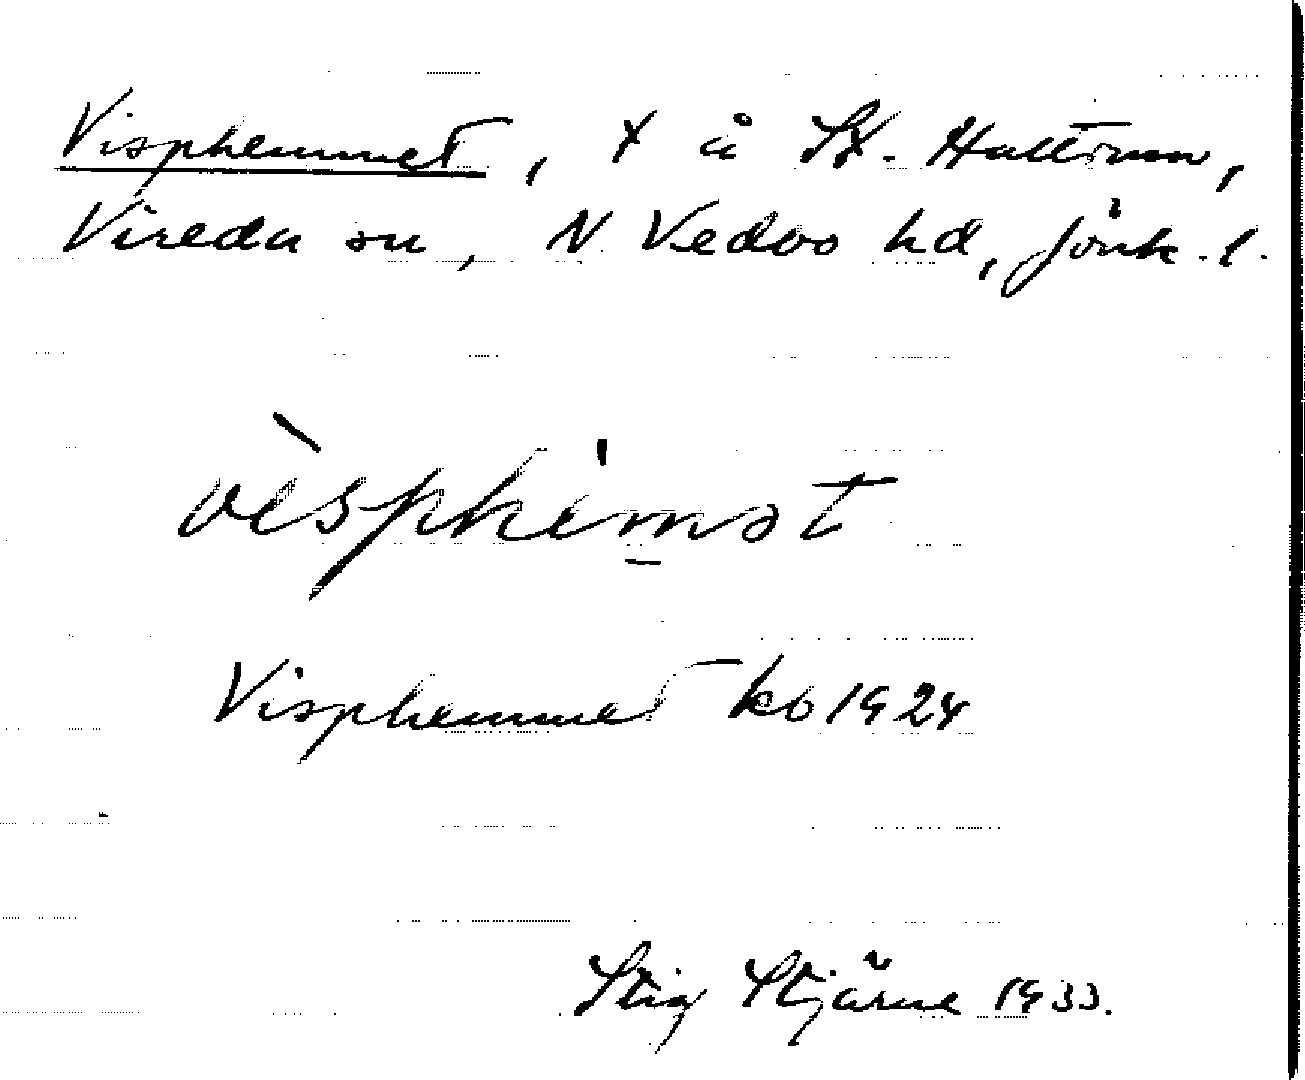 Visphemmet, x å St. Hultrum,
Vireda sn, N. Vedbo hd, Jönk. l.
vèsphèmət
Visphemmet kb 1924
Stig Stjärne 1933.